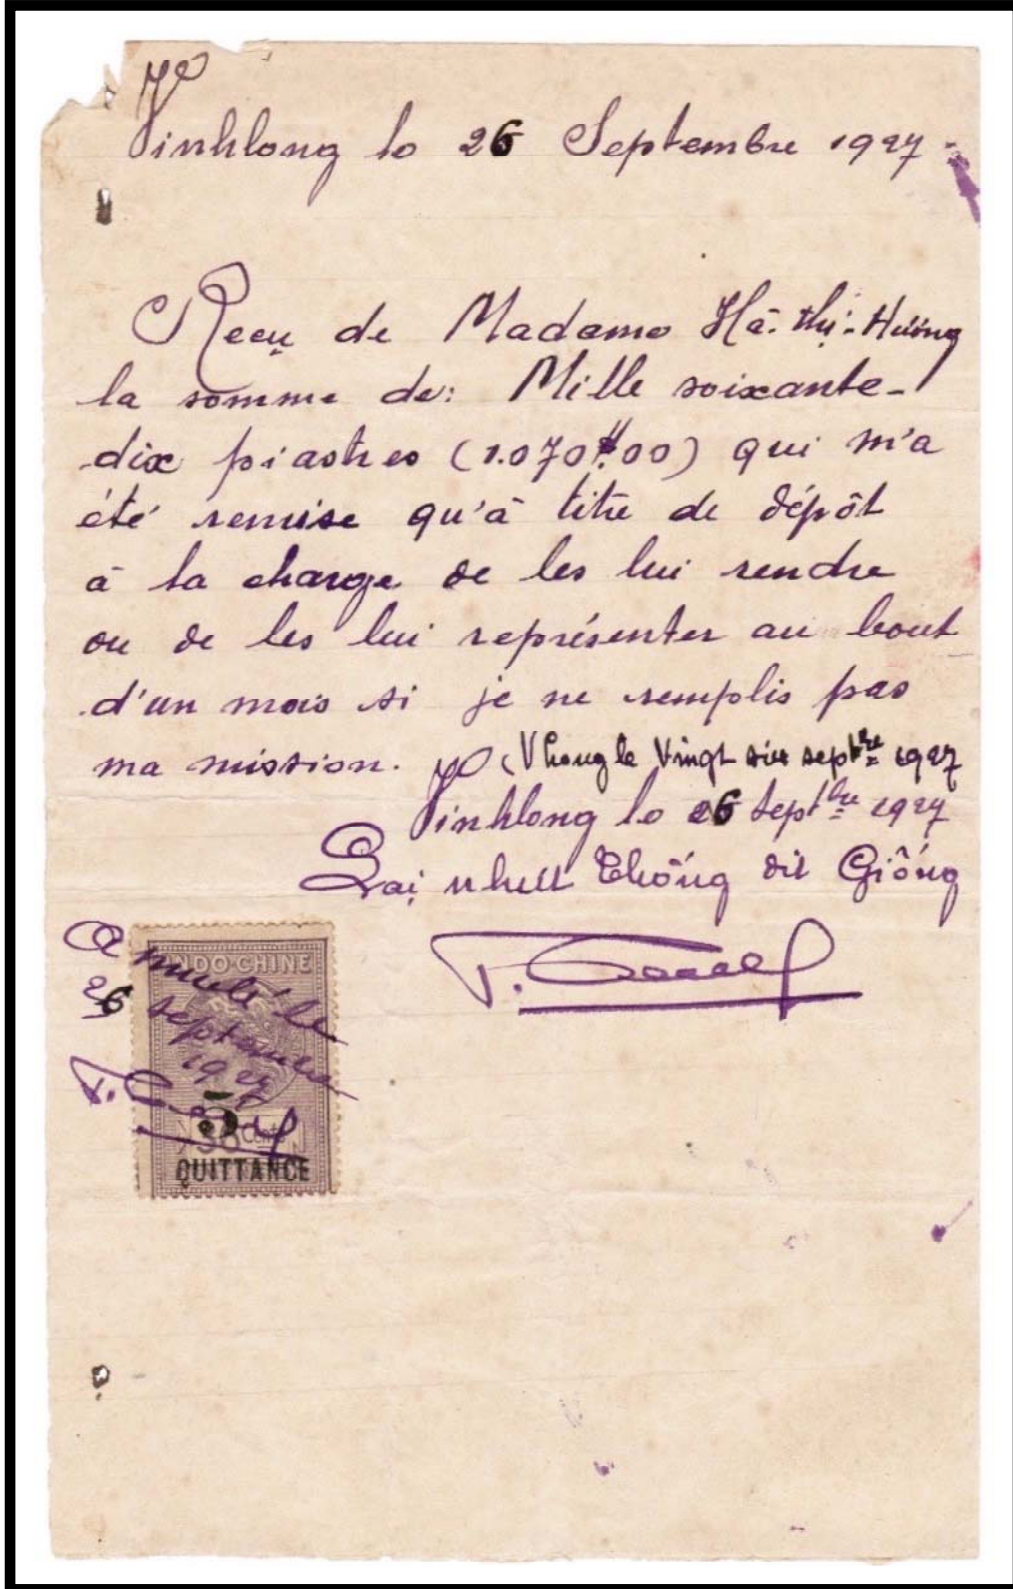 Vinhlong le 26 Septembre 1927.
Reçu de Madame Hà-thị-Hương
la somme de: Mille soixante-
dix piastres (1.070$00) qui m'a
été remise qu'à titre de dépôt
à la charge de les lui rendre
ou de les lui représenter au bout
d'un mois si je ne remplis pas
ma mission. Vlong le Vingt six septbre 1927
Vinhlong le 26 Septbre 1927
Lai nhut Thống dit Giống
INDO-CHINE
Annulé le
26 septembre
1927
5
Cents
QUITTANCE